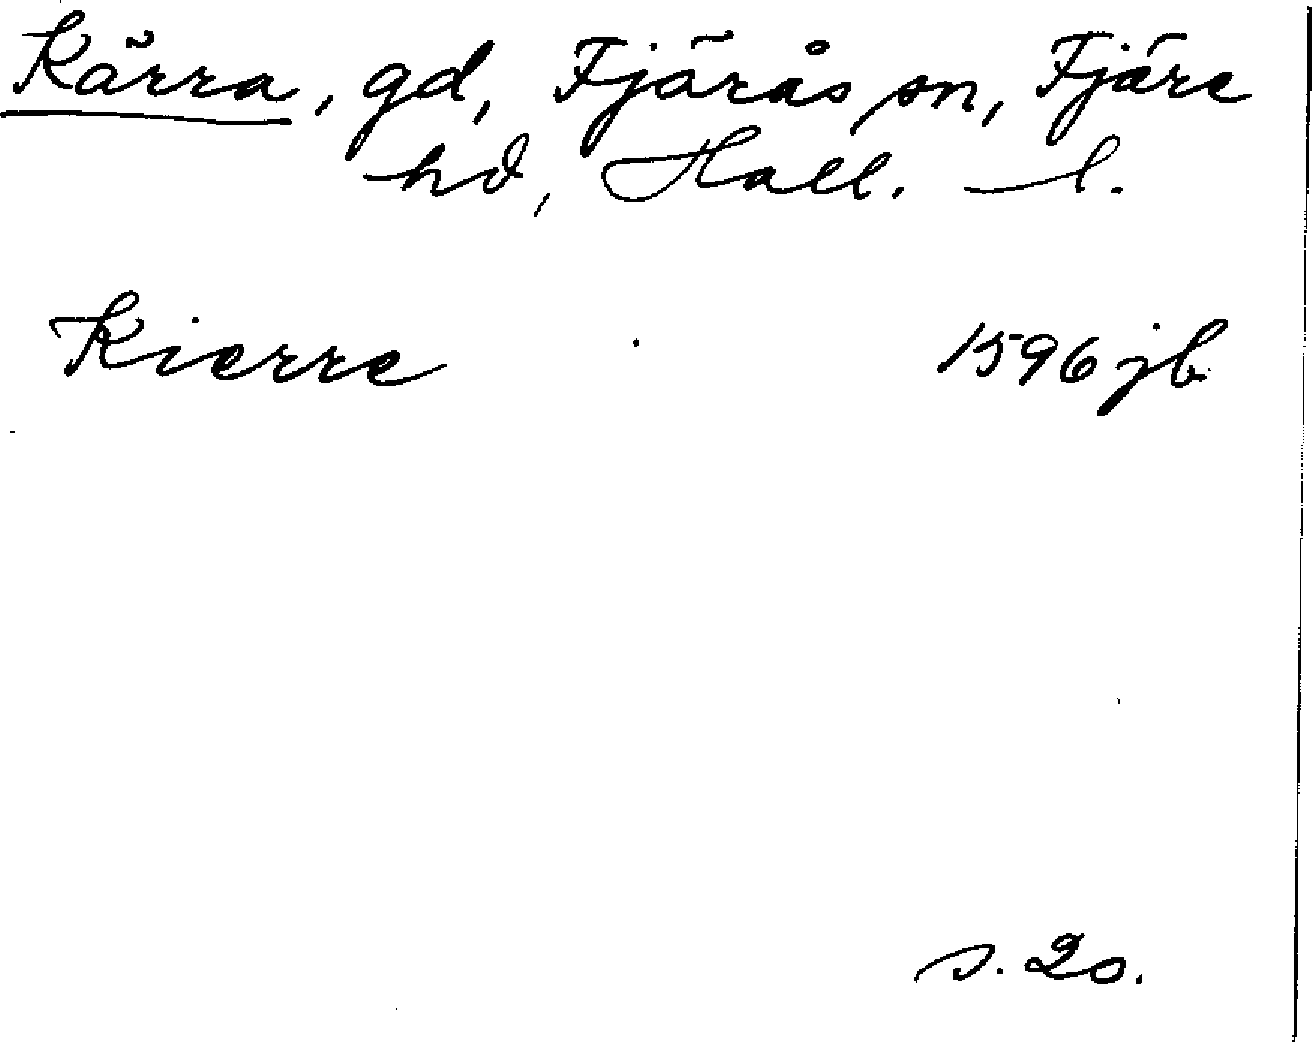 Kärra, gd, Fjärås sn, Fjäre
hd, Hall. l.
Kierre 1596 jb
s. 20.